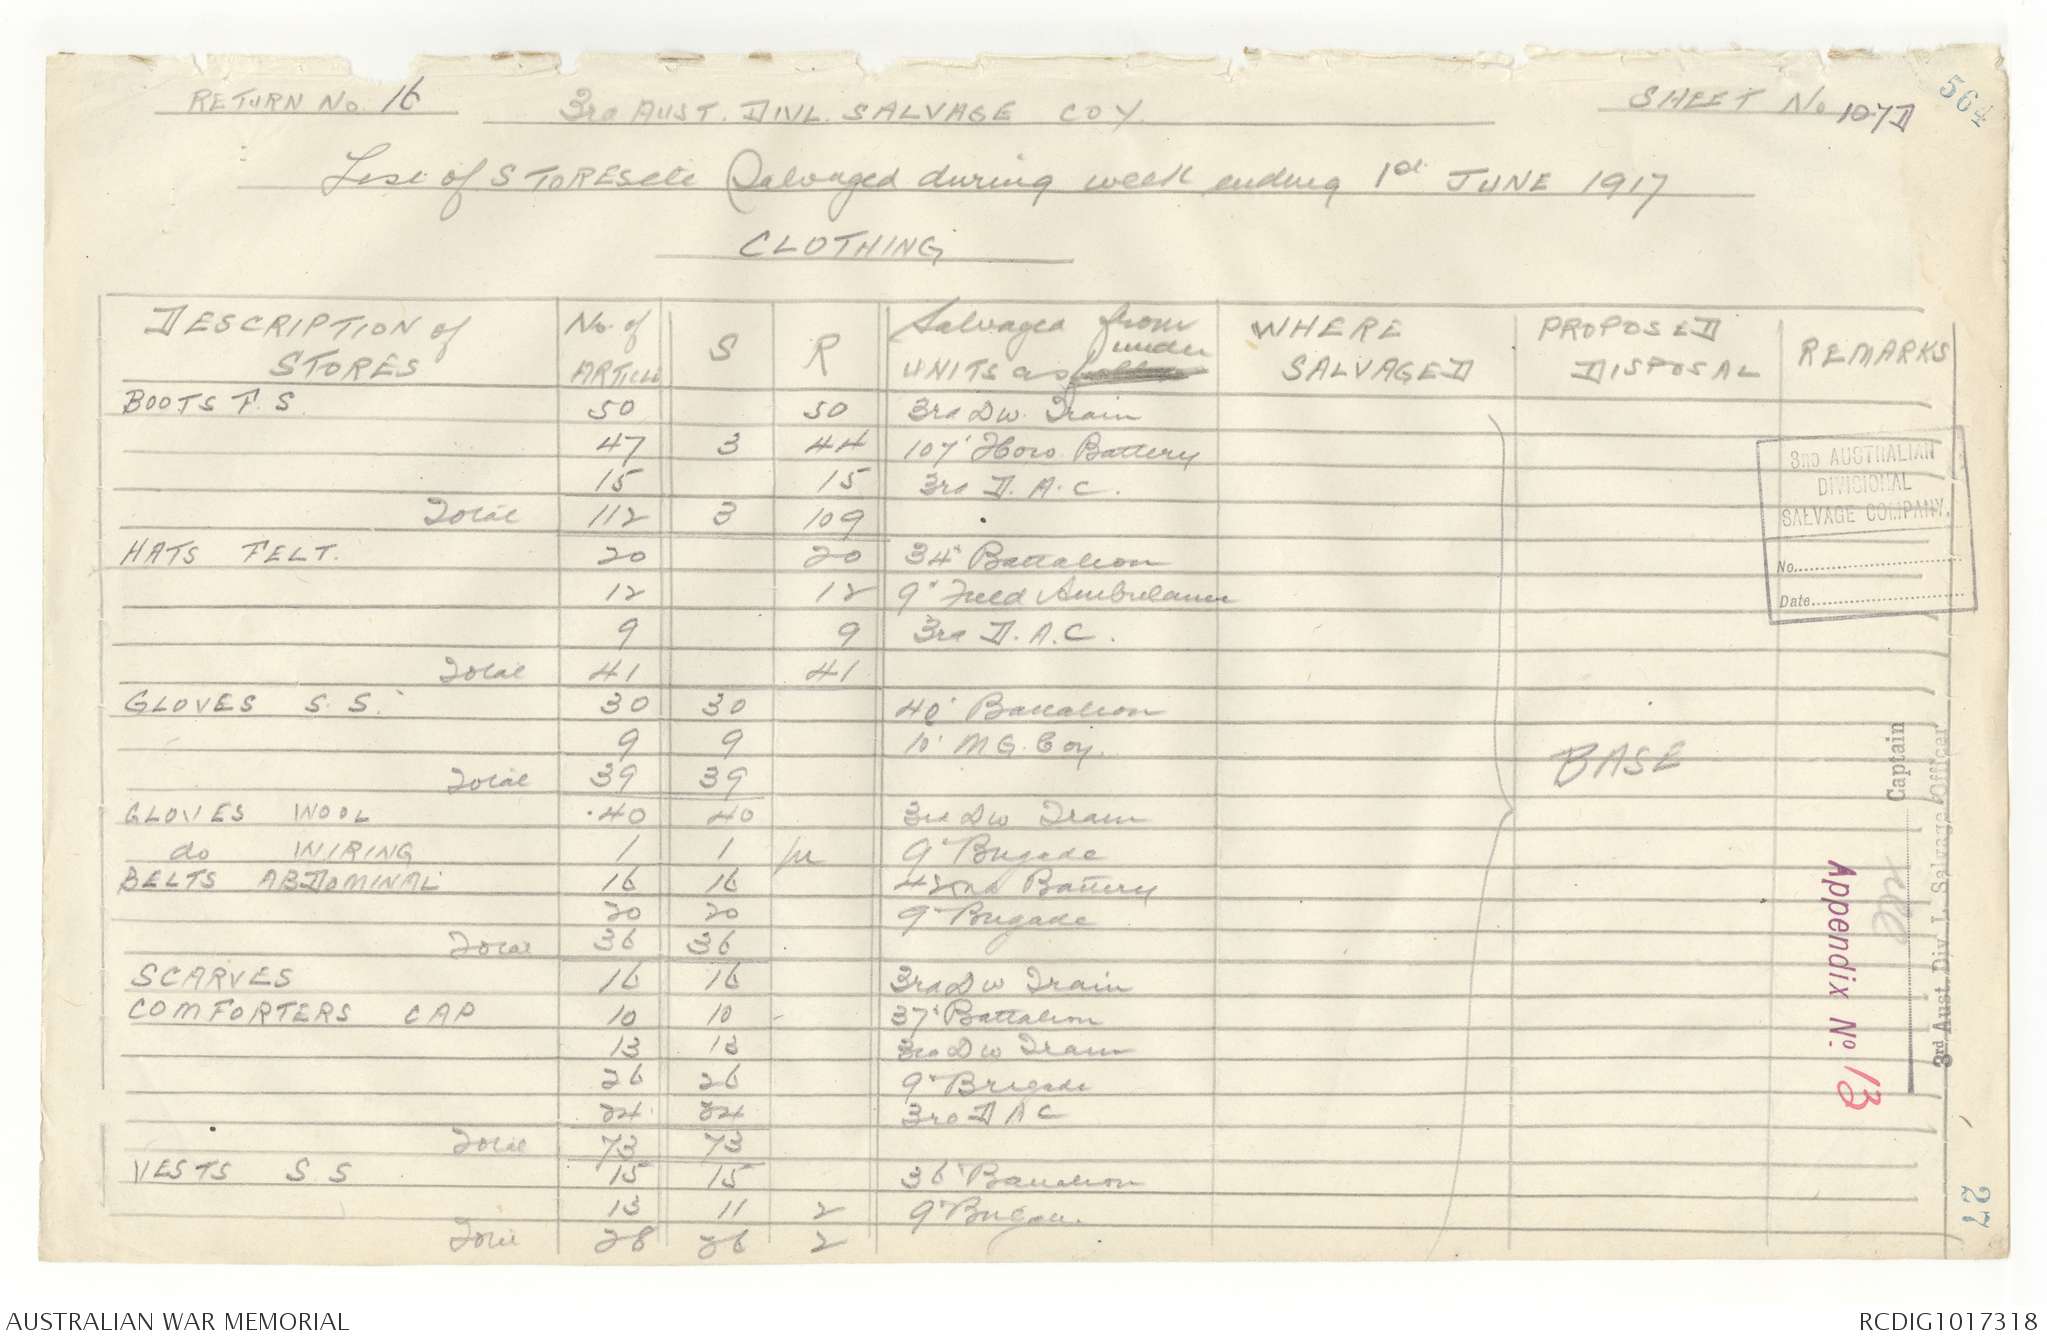 RETURN No. 16 3rd AUST. DIVL. SALVAGE COY. SHEET No 107D
564
List of STORES etc Salvaged during week ending 1st JUNE 1917
CLOTHING
DESCRIPTION of STORES No. of ARTICLES S R Salvaged from UNITS as under WHERE SALVAGED PROPOSED DISPOSAL REMARKS
BOOTS F.S. 50 50 3rd Div. Train
47 3 44 107' How Battery
15 15 3rd D.A.C.
Total 112 3 109
HATS FELT. 20 20 34" Battalion
12 12 9" Field Ambulance
9 9 3rd D.A.C.
Total 41 41
GLOVES S.S. 30 30 40' Battalion
9 9 10' M.G. Coy.
Total 39 39
BASE
GLOVES WOOL 40 40 3rd Div Train
do WIRING 1 1 pr 9" Brigade
BELTS ABDOMINAL 16 16 42nd Battery
20 20 9" Brigade
Total 36 36
SCARVES 16 16 3rd Div Train
COMFORTERS CAP 10 10 37' Battalion
13 13 3rd Div Train
26 26 9" Brigade
24 24 3rd D A C
Total 73 73
VESTS S S 15 15 36' Battalion
13 11 2 9" Brigade
Total 28 26 2
3RD AUSTRALIAN
DIVISIONAL
SALVAGE COMPANY.
No.
Date
Captain
3rd Aust. Div'l. Salvage Officer
Appendix No. 13
27
AUSTRALIAN WAR MEMORIAL RCDIG1017318